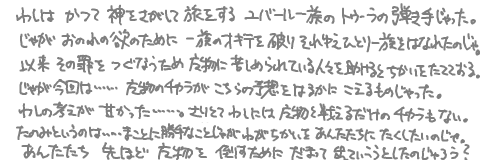 わしは かつて 神をさがして旅をする ユバール一族の トゥーラの弾き手じゃった。
じゃが おのれの欲のために 一族のオキテを破り それゆえひとり一族をはなれたのじゃ。
以来 その罪をつぐなうため 魔物に苦しめられている人々を助けるとちかいをたてておる。
じゃが今回は…… 魔物のチカラが こちらの予想をはるかに こえるものじゃった。
わしの考えが 甘かった……。さりとて わしには 魔物と戦えるだけの チカラもない。
たのみというのは…… まことに勝手なことじゃが わがちかいを あんたたちに たくしたいのじゃ。
あんたたち 先ほど 魔物を 倒すために だまって 出ていこうとしたのじゃろう?